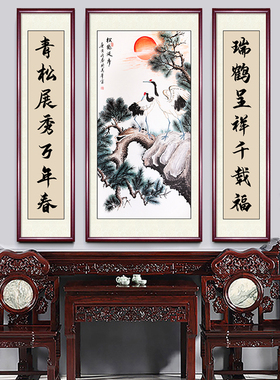 瑞鹤呈祥千载福
松鹤延年
青松展秀万年春